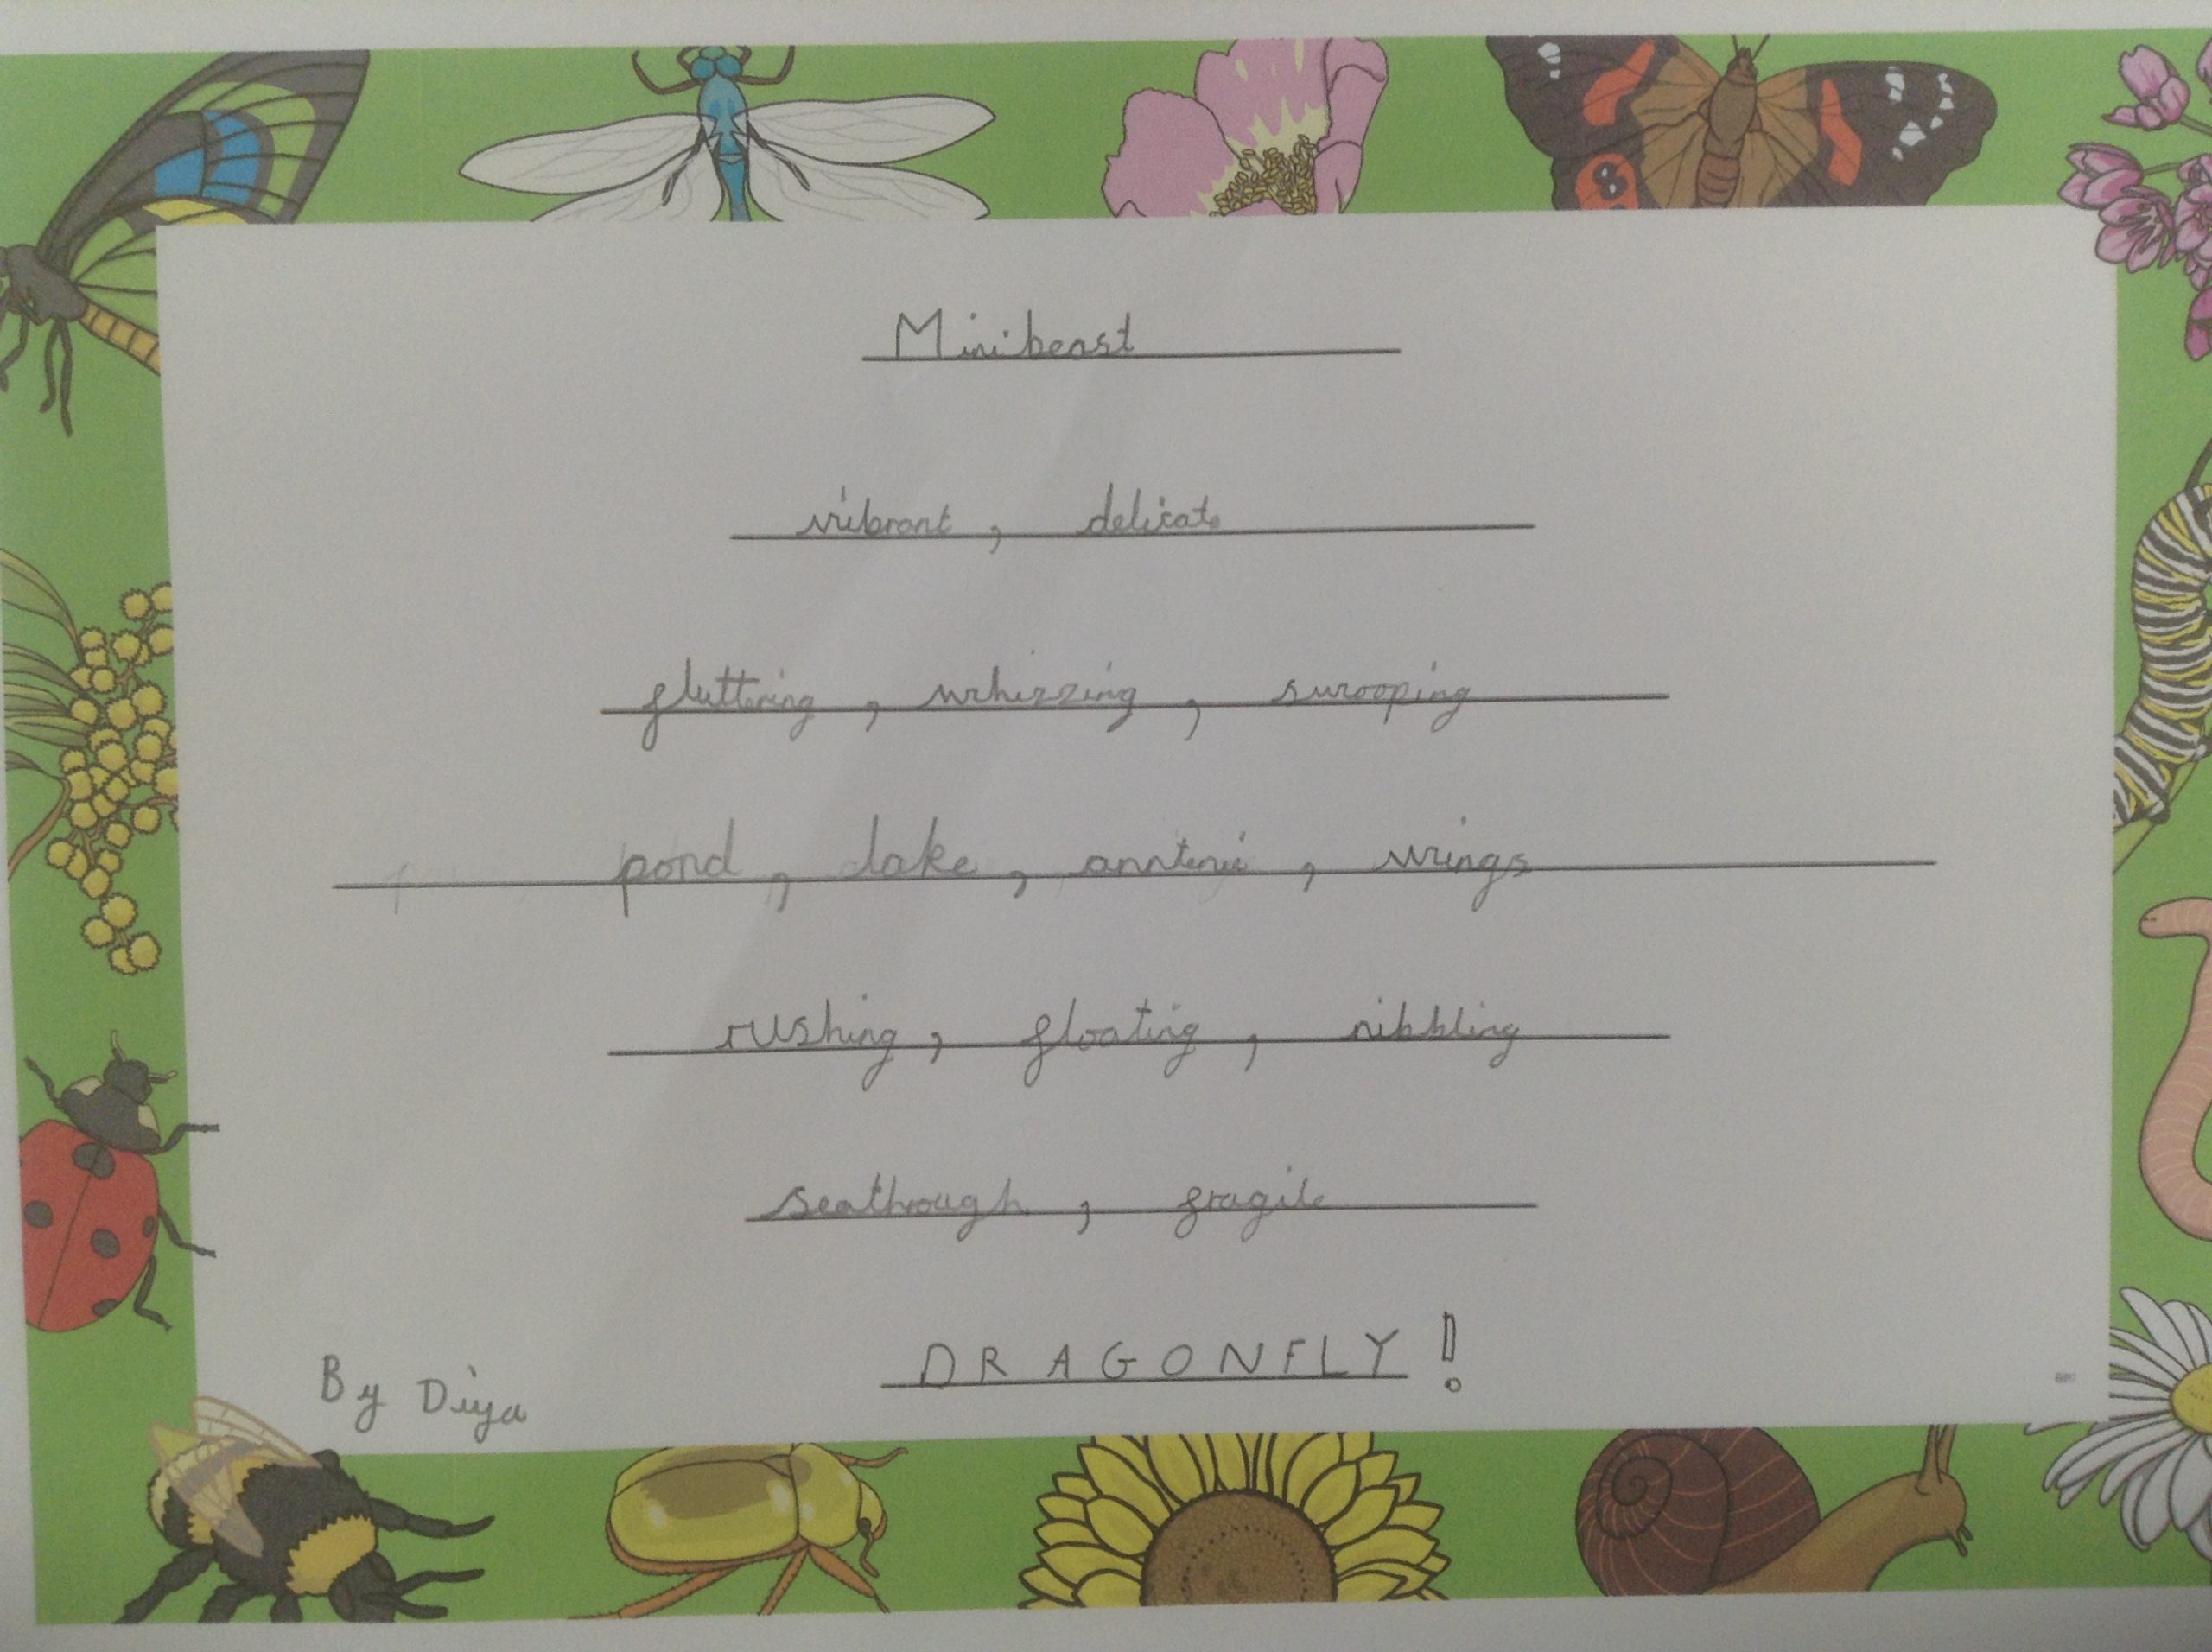 Minibeast
vibrant, delicate
fluttering, whizzing, swooping
pond, lake, anntenie, wings
rushing, floating, nibbling
seathrough, fragile
DRAGONFLY!
By Diya